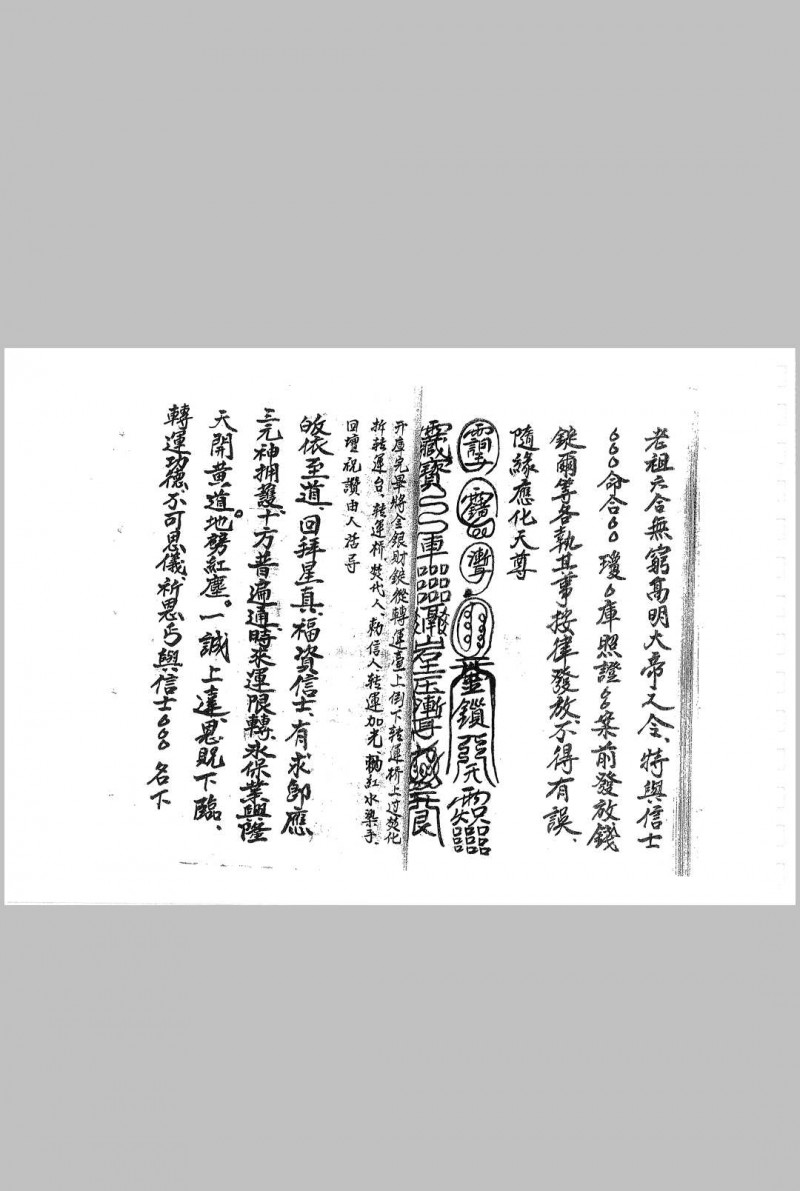 老祖六合無窮高明大帝又令、特與信士
命合 瓊 庫照證 案前發放錢
錠爾等各執其事按律發放、不得有誤、
隨緣應化天尊
鎖
寶 庫
开庫完畢將金銀財錠從轉運台上倒下轉運桥上过焚化
拆轉運台、轉運桥、焚代人、勅信人、轉運加光、勅紅水染手、
回壇祝讚由人活寻
皈依至道、回拜星真、福資信士、有求卽應
三元神拥護、十方普遍通、時求運限轉、永保業興隆
天開黄道、地努紅塵。一誠上達、恩既下臨、
轉運功德、不可思儀、祈恩与與信士 名下